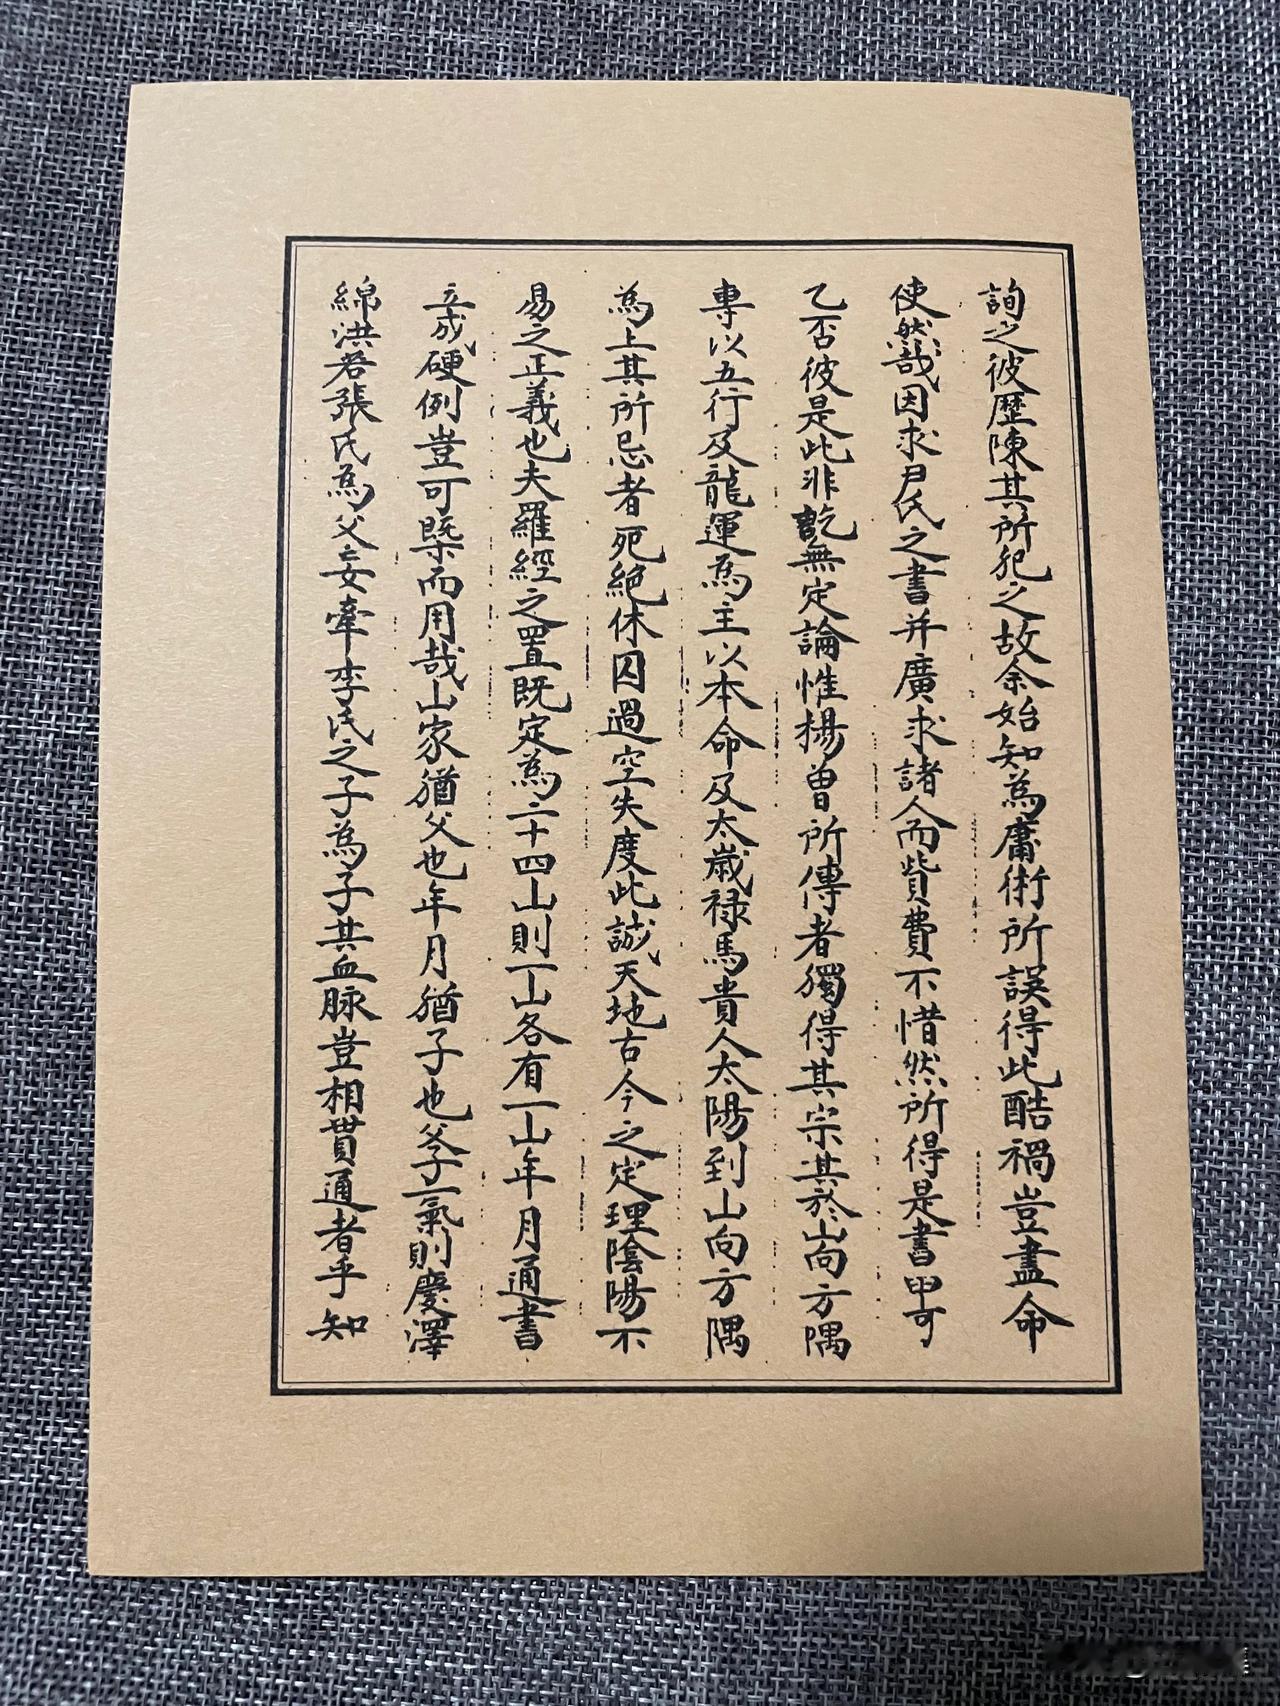 詢之彼歴陳其所犯之故余始知為庸術所誤得此酷禍豈盡命
使然哉因求尹氏之書并廣求諸人而貲費不惜然所得是書甲可
乙否彼是此非訖無定論惟楊曾所傳者獨得其宗其於山向方隅
專以五行及龍運為主以本命及太歲禄馬貴人太陽到山向方隅
為上其所忌者死絕休囚過空失度此誠天地古今之定理陰陽不
易之正義也夫羅經之置既定為二十四山則一山各有一山年月通書
立成硬例豈可槩而用哉山家猶父也年月猶子也父子一氣則慶澤
綿洪若張氏為父妄牽李氏之子為子其血脉豈相貫通者乎知